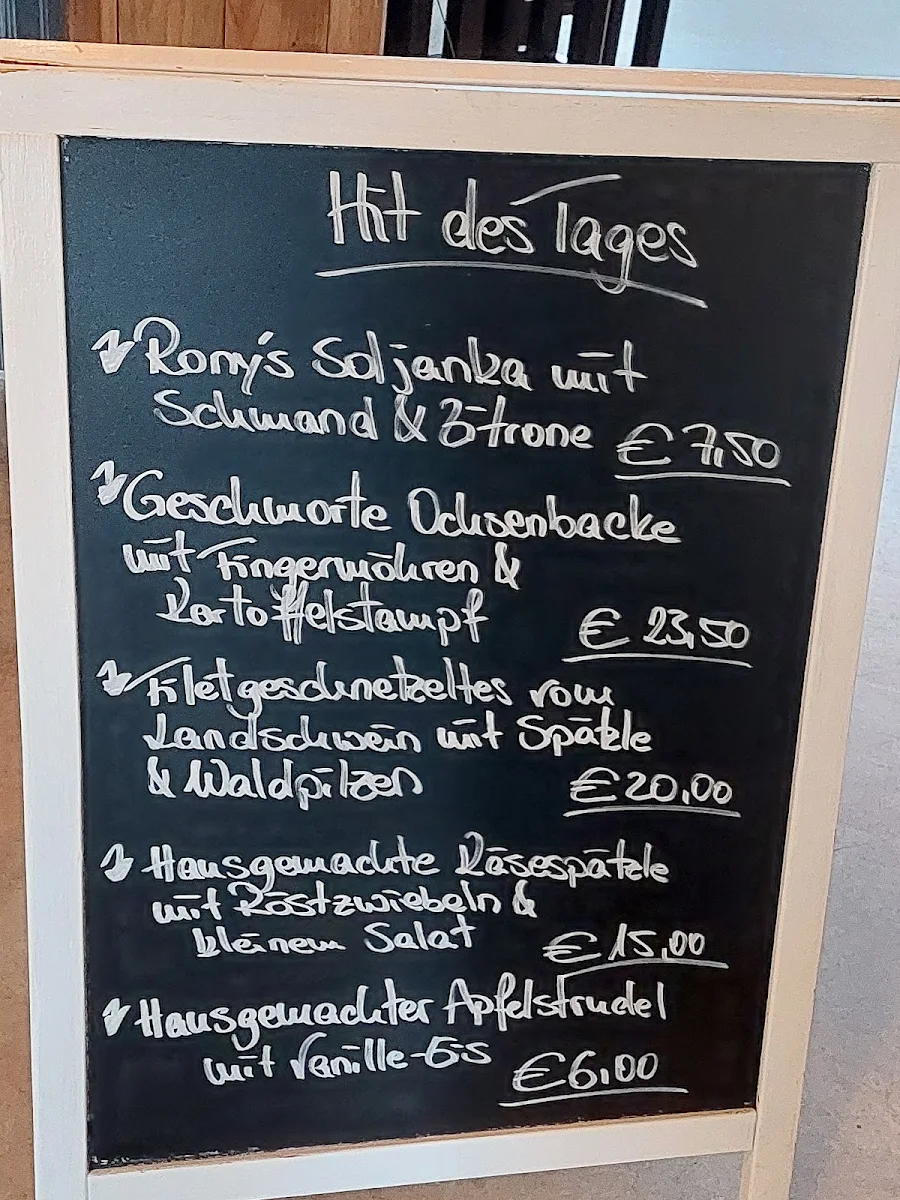 Hit des Tages
Romy's Soljanka mit
Schmand & Zitrone € 7,50
Geschmorte Ochsenbacke
mit Fingermöhren &
Kartoffelstampf € 23,50
Filetgeschnetzeltes vom
Landschwein mit Spätzle
& Waldpilzen € 20,00
Hausgemachte Käsespätzle
mit Röstzwiebeln &
kleinem Salat € 15,00
Hausgemachter Apfelstrudel
mit Vanille-Eis € 6,00